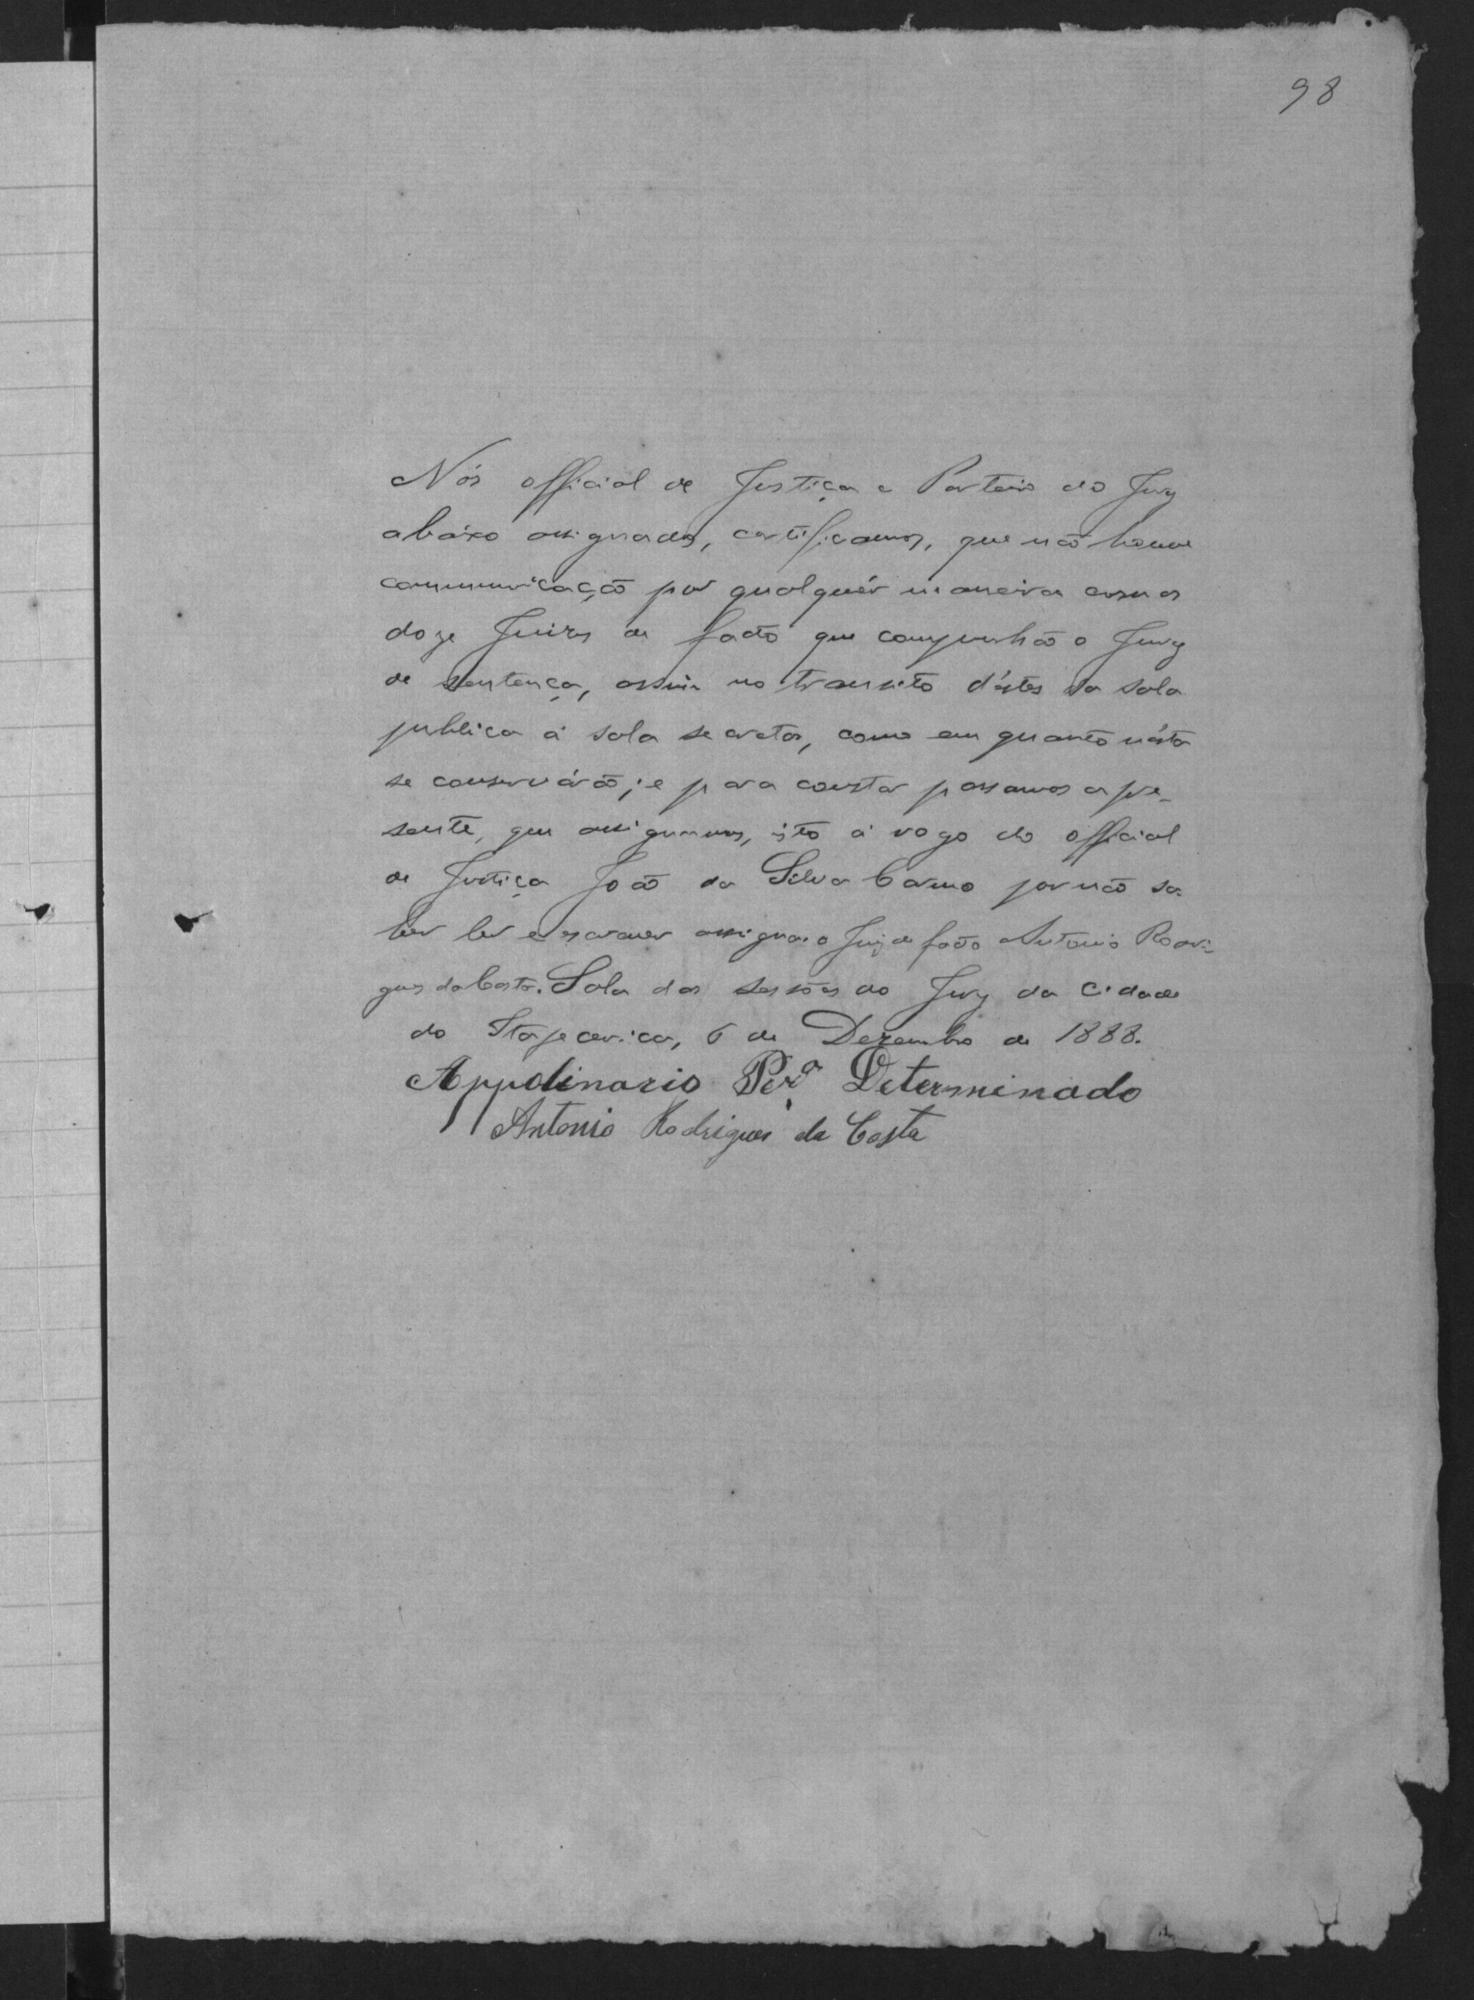 98
Nós official de Justiça e Porteiro do Jury
abáixo assignados, certificamos, que não houve
communicação por qualquér maneira com os
doze Juizes de facto que compunhão o Jury
de sentença, assim no transito d'éstes da sala
publica á sala secreta, como em quanto nésta
se conservárão; e para constar passamos a pre-
sente, que assignamos, isto á rogo do official
de Justiça João da Silva Carmo por não sa-
ber ler e escrever assigna o Juiz de facto Antonio Rodri-
gues da Costa. Sala das sessões do Jury da Cidade
do Itapecerica, 6 de Dezembro de 1888.
Appolinario Per.ª Determinado
Antonio Rodrigues da Costa